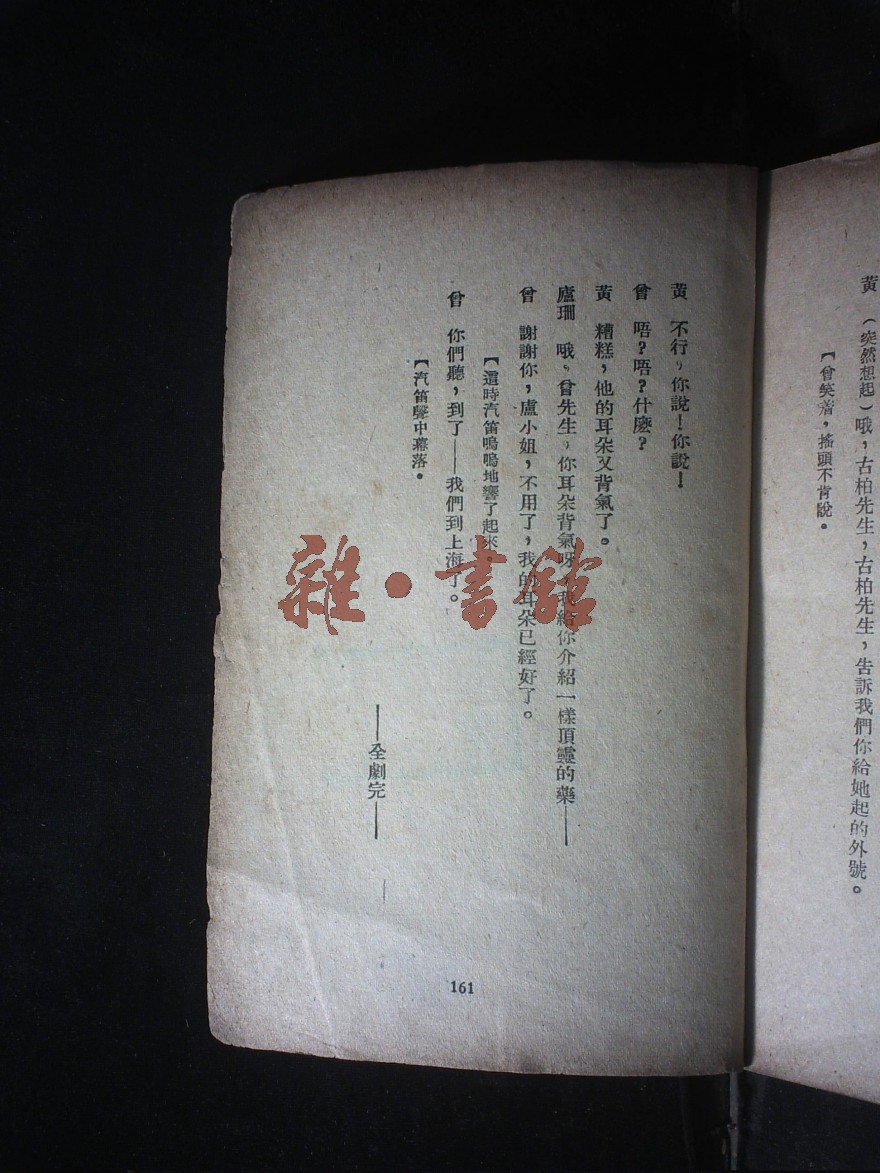 黃　（突然想起）哦，古柏先生，古柏先生，告訴我們你給她起的外號。
【曾笑着，搖頭不肯說。
黃　不行，你說！你說！
曾　唔？唔？什麼？
黃　糟糕，他的耳朵又背氣了。
盧珊　哦，曾先生，你耳朵背氣呀，我給你介紹一樣頂靈的藥——
曾　謝謝你，盧小姐，不用了，我的耳朵已經好了。
【這時汽笛嗚嗚地響了起來
曾　你們聽，到了——我們到上海了。
【汽笛聲中幕落。
——全劇完——
161
雜·書館